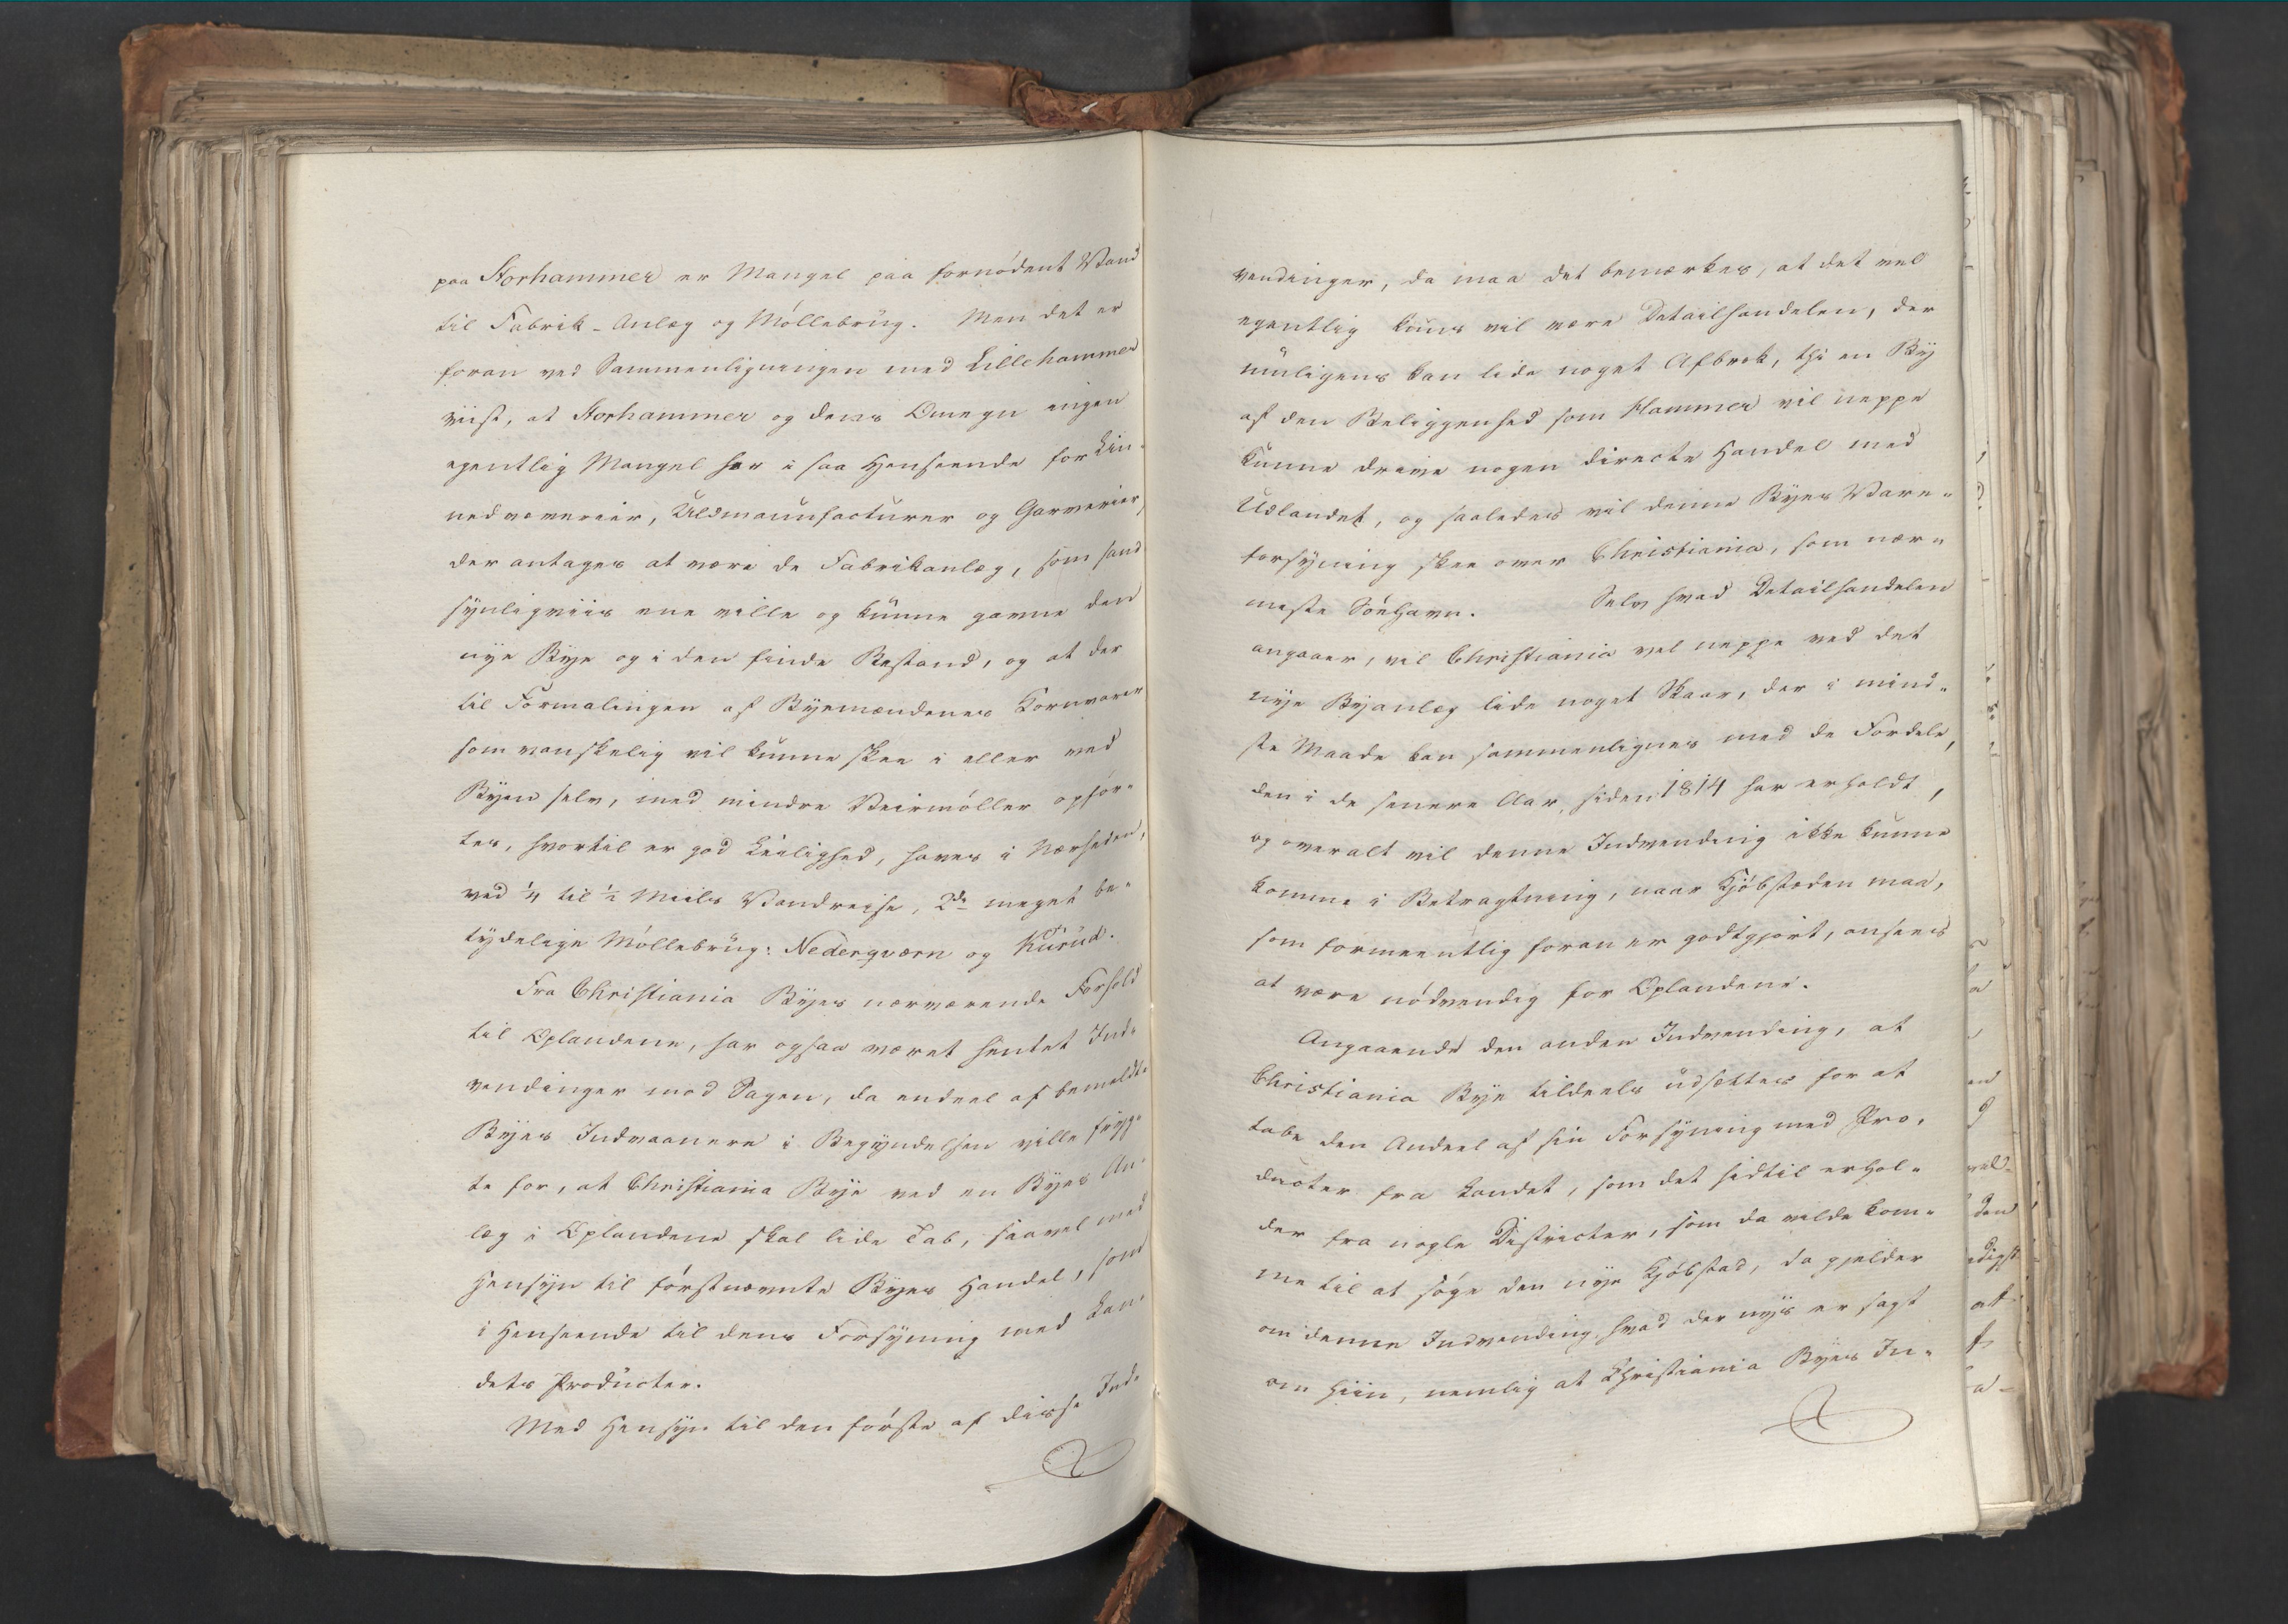 paa Storhammer er Mangel paa fornödent Vand
til Fabrik-Anlæg og Möllebrug. Men det er
foran ved Sammenligningen med Lillehammer
viist, at Storhammer og dens Omegn ingen
egentlig Mangel har i saa Henseende for Lin-
nedvæverier, Uldmanufacturer og Garverier,
der antages at være de Fabrikanlæg, som sand
synligviis ene ville og kunne gavne den
nye Bye og i den finde Bestand, og at der
til Formalingen af Byemændenes Kornvarer
som vanskelig vil kunne skee i eller ved
Byen selv, med mindre Veirmöller opför-
tes, hvortil er god Leilighed, haves i Nærheden,
ved ¼ til ½ Miils Vandreise, 2de meget be-
tydelige Möllebrug: Nederqværn og
Fra Christiania Byes nærværende Forhold
til Oplandene, har ogsaa været hentet Ind-
vendinger mod Sagen, da endeel af bemeldte
Byes Indvaanere i Begyndelsen ville fryg-
te for, at Christiania Bye ved en Byes An-
læg i Oplandene skal lide Tab, saavel med
Hensyn til förstnævnte Byes Handel, som
i Henseende til dens Forsyning med Lan-
dets Producter.
Med Hensyn til den förste af disse Ind-
vendinger, da maa det bemærkes, at det vel
egentlig kuns vil være Detailhandelen, der
muligens kan lide noget Afbræk, thi en By
af den Beliggenhed som Hammer vil neppe
kunne drive nogen directe Handel med
Udlandet, og saaledes vil denne Byes Vare-
forsyning skee over Christiania, som nær-
meste Söehavn. Selv hvad Detailhandelen
angaaer, vil Christiania vel neppe ved det
nye Byanlæg lide noget Skaar, der i mind-
ste Maade kan sammenlignes med de Fordele,
den i de senere Aar, siden 1814 har erholdt,
og overalt vil denne Indvending ikke kunne
komme i Betragtning, naar Kjöbstæden maa,
som formeentlig foran er godtgjort, ansees
at være nödvendig for Oplandene.
Angaaende den anden Indvending, at
Christiania Bye tildeels udsættes for at
tabe den Andeel af sin Forsyning med Pro-
ducter fra Landet, som det hidtil erhol-
der fra nogle Districter, som da vilde kom-
me til at söge den nye Kjöbstad, da gjelder
om denne Indvending, hvad der nys er sagt
om hiin, nemlig at Christiania Byes In-